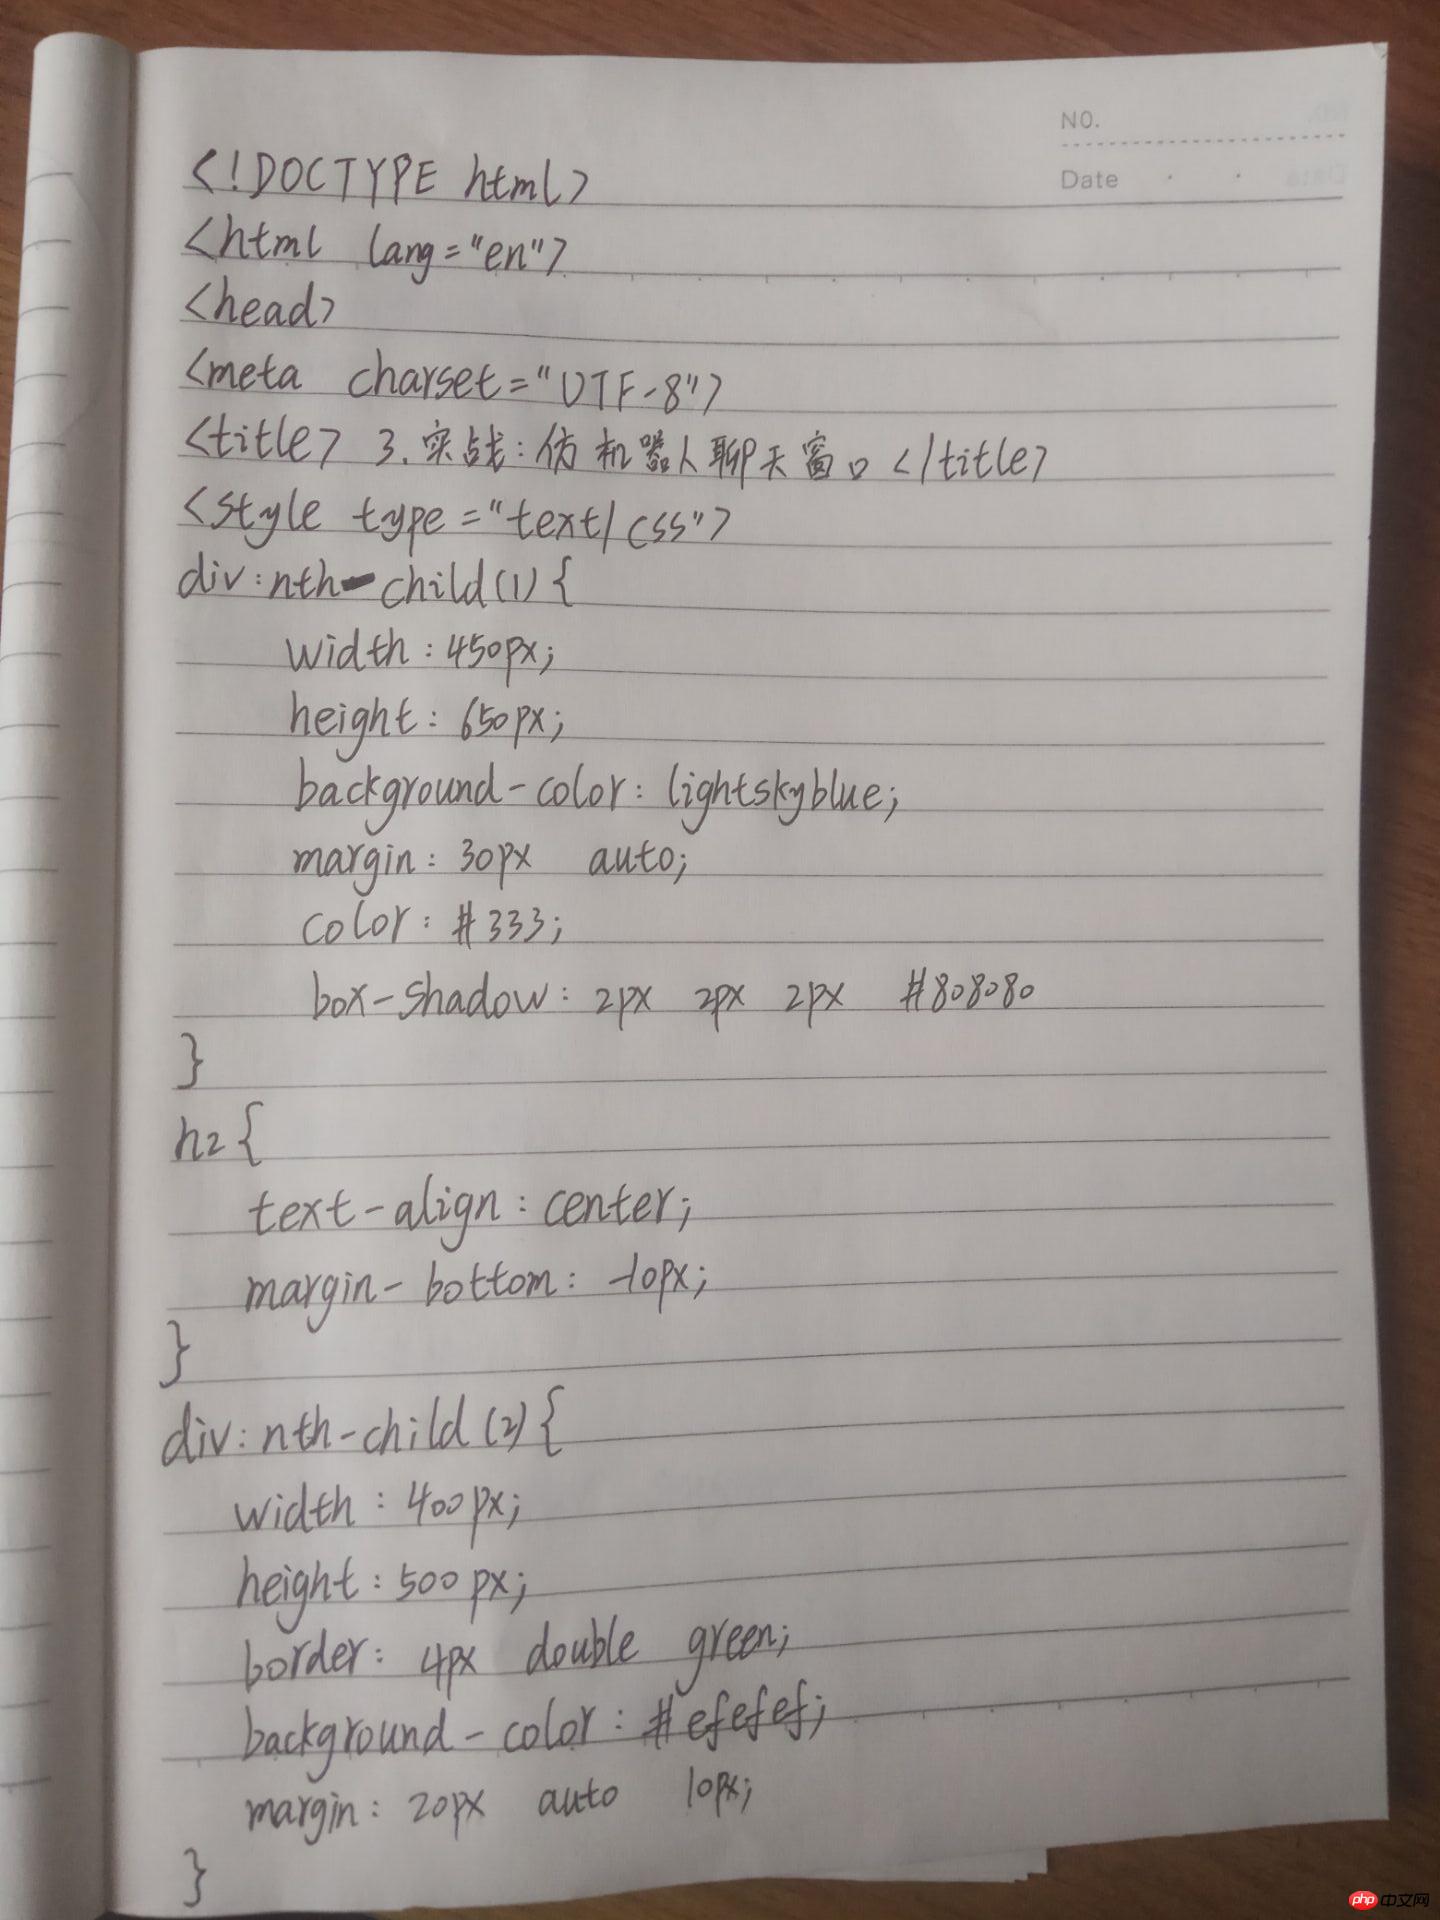 NO.
Date
<!DOCTYPE html>
<html lang="en">
<head>
<meta charset="UTF-8">
<title> 3.实战:仿机器人聊天窗口</title>
<style type="text/css">
div:nth-child(1){
width:450px;
height:650px;
background-color:lightskyblue;
margin:30px auto;
color:#333;
box-shadow:2px 2px 2px #808080
}
h2{
text-align:center;
margin-bottom:-10px;
}
div:nth-child(2){
width:400px;
height:500px;
border:4px double green;
background-color:#efefef;
margin:20px auto 10px;
}
php中文网